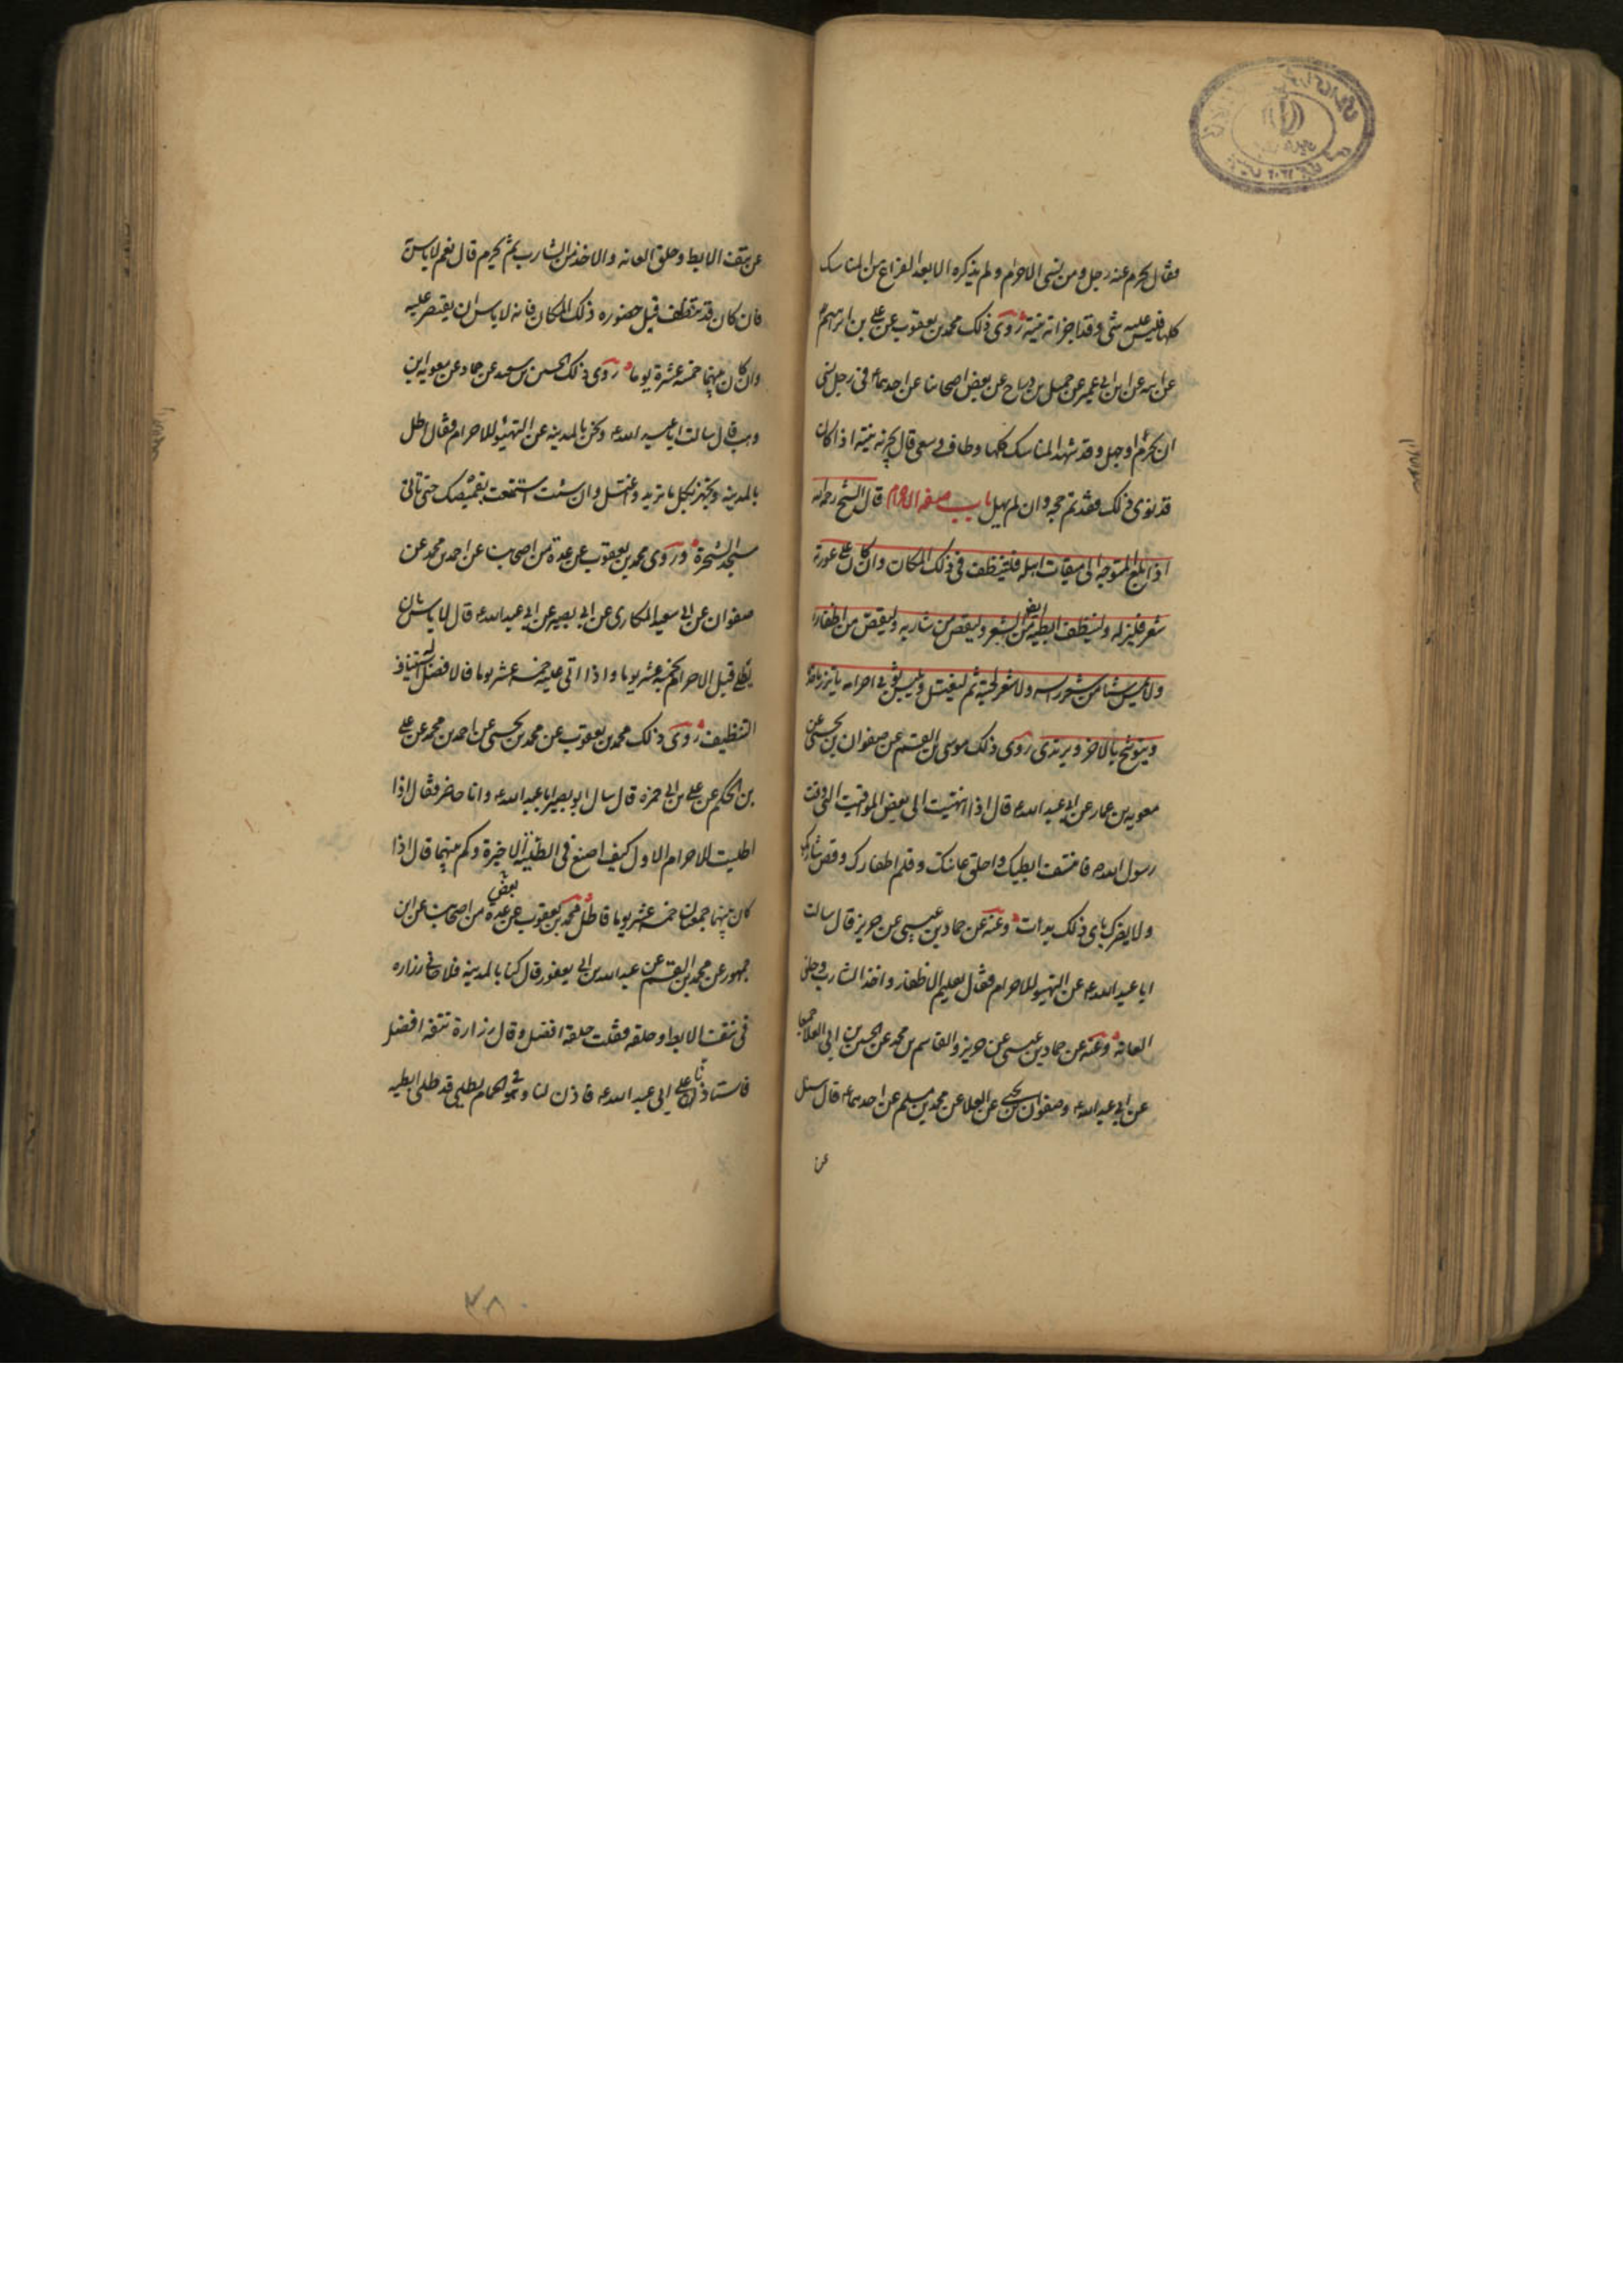 فقال يحرم عنه رجل ومن نسي الاحرام ولم يذكره الا بعد الفراغ من المناسك
كلها فليس عليه شي وقد اجزاته نيته روى ذلك محمد بن يعقوب عن علي بن ابرهيم
عن ابيه عن ابن ابي عمير عن جميل بن دراج عن بعض اصحابنا عن احدهما في رجل نسي
ان يحرم او جهل وقد شهد المناسك كلها وطاف وسعى قال يجزيه نيته اذا كان
قد نوى ذلك فقد تم حجه وان لم يهل باب صفة الاحرام قال الشيخ رحمه الله
اذا بلغ المتوجه الى ميقات اهله فليتنظف في ذلك المكان وان كان على عورته
شعر فليزله ولينظف ابطيه ايضا من الشعر وليقص من شاربه وليقص من اظفاره
ولا يمس شيئا من شعر راسه ولا شعر لحيته ثم ليغتسل ويلبس ثوبي احرامه ياتزر باحدهما
ويتوشح بالاخر ويرتدي روى ذلك موسى بن القسم عن صفوان بن يحيى عن
معويه بن عمار عن ابي عبد الله ع قال اذا انتهيت الى بعض المواقيت التي وقت
رسول الله ص فانتف ابطيك واحلق عانتك وقلم اظفارك وقص شاربك
ولا يضرك باي ذلك بدات وعنه عن حماد بن عيسى عن حريز قال سالت
ابا عبد الله ع عن التهيو للاحرام فقال تقليم الاظفار واخذ الشارب وحلق
العانه وعنه عن حماد بن عيسى عن حريز والقاسم بن محمد عن الحسين بن ابي العلا جميعا
عن ابي عبد الله ع وصفوان بن يحيى عن العلا عن محمد بن مسلم عن احدهما ع قال سئل
عن
عن نتف الابط وحلق العانه والاخذ من الشارب ثم يحرم قال نعم لا باس به
فان كان قد تنظف قبل حضوره ذلك المكان فانه لا باس ان يقتصر عليه
وان كان بينهما خمسة عشرة يوما روى ذلك الحسين بن سعيد عن حماد عن معويه ابن
وهب قال سالت ابا عبد الله ع ونحن بالمدينه عن التهيئو للاحرام فقال اطل
بالمدينه وتجهز بكل ما تريد واغتسل وان شئت استمتعت بقميصك حتى تاتي
مسجد الشجرة وروى محمد بن يعقوب عن عدة من اصحابنا عن احمد بن محمد عن
صفوان عن ابي سعيد المكاري عن ابي بصير عن ابي عبد الله ع قال لا باس بان
يطلي قبل الاحرام بخمسه عشر يوما واذا اتى عليه خمسه عشر يوما فالافضل له استيناف
التنظيف روى ذلك محمد بن يعقوب عن محمد بن يحيى عن احمد بن محمد عن علي
بن الحكم عن علي بن ابي حمزه قال سال ابو بصير ابا عبد الله ع وانا حاضر فقال اذا
اطليت للاحرام الاول كيف اصنع في الطلية الاخيرة وكم بينهما قال اذا
كان بينهما جمعتان خمسه عشر يوما فاطل محمد بن يعقوب عن بعض عدة من اصحابنا عن ابن
جمهور عن محمد بن القسم عن عبد الله بن ابي يعفور قال كنا بالمدينه فلاحاني زراره
في نتف الابط وحلقه فقلت حلقه افضل وقال زرارة نتفه افضل
فاستاذنا على ابي عبد الله ع فاذن لنا وهو في الحمام يطلي قد طلى ابطيه